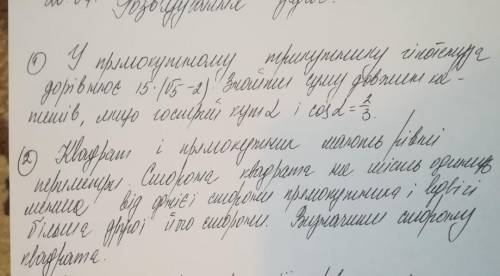 Розв'язування задач.
① У прямокутному трикутнику гіпотенуза
дорівнює 15·(√5-2). Знайти суму довжин ка-
тетів, якщо гострий кут α і cosα=2/3.
② Квадрат і прямокутник мають рівні
периметри. Сторона квадрата на шість одиниць
менша від однієї сторони прямокутника і вдвічі
більша другої його сторони. Визначити сторону
квадрата.